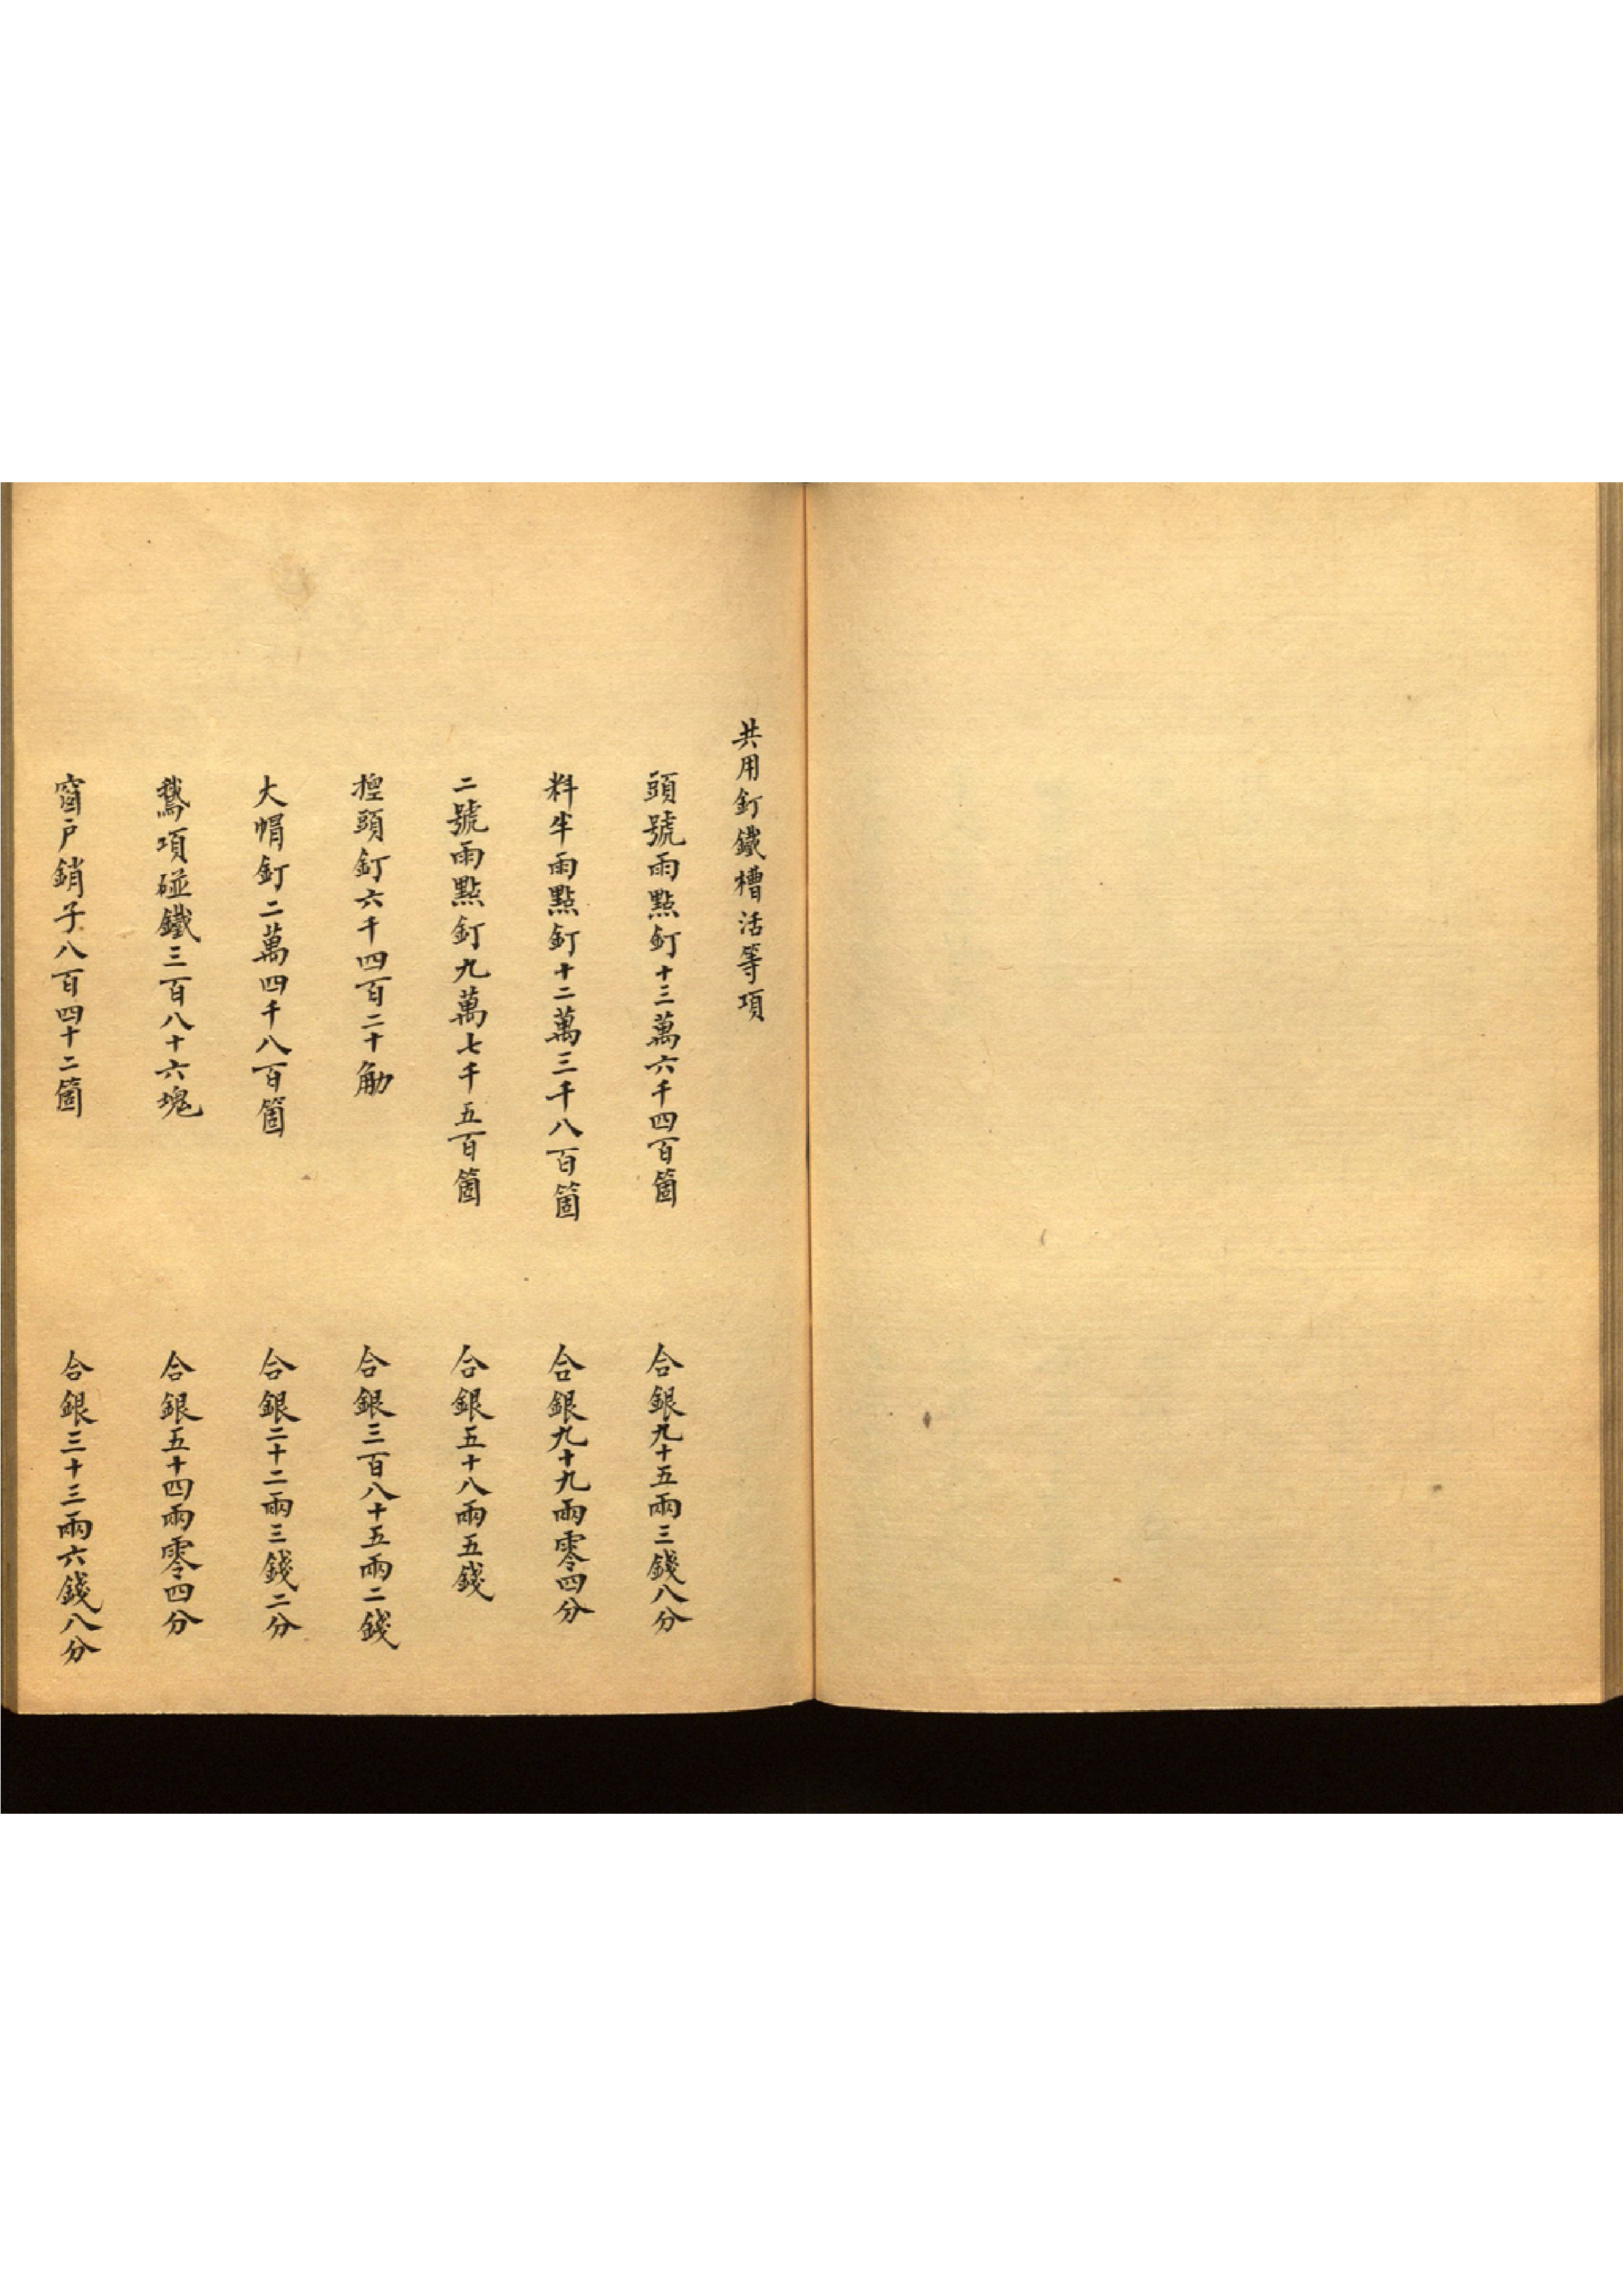 共用釘鐵槽活等項
頭號雨點釘十三萬六千四百箇 合銀九十五兩三錢八分
料半雨點釘十二萬三千八百箇 合銀九十九兩零四分
二號雨點釘九萬七千五百箇 合銀五十八兩五錢
頭釘六千四百二十觔 合銀三百八十五兩二錢
大帽釘二萬四千八百箇 合銀二十二兩三錢二分
鵝項碰鐵三百八十六塊 合銀五十四兩零四分
窗户銷子八百四十二箇 合銀三十三兩六錢八分